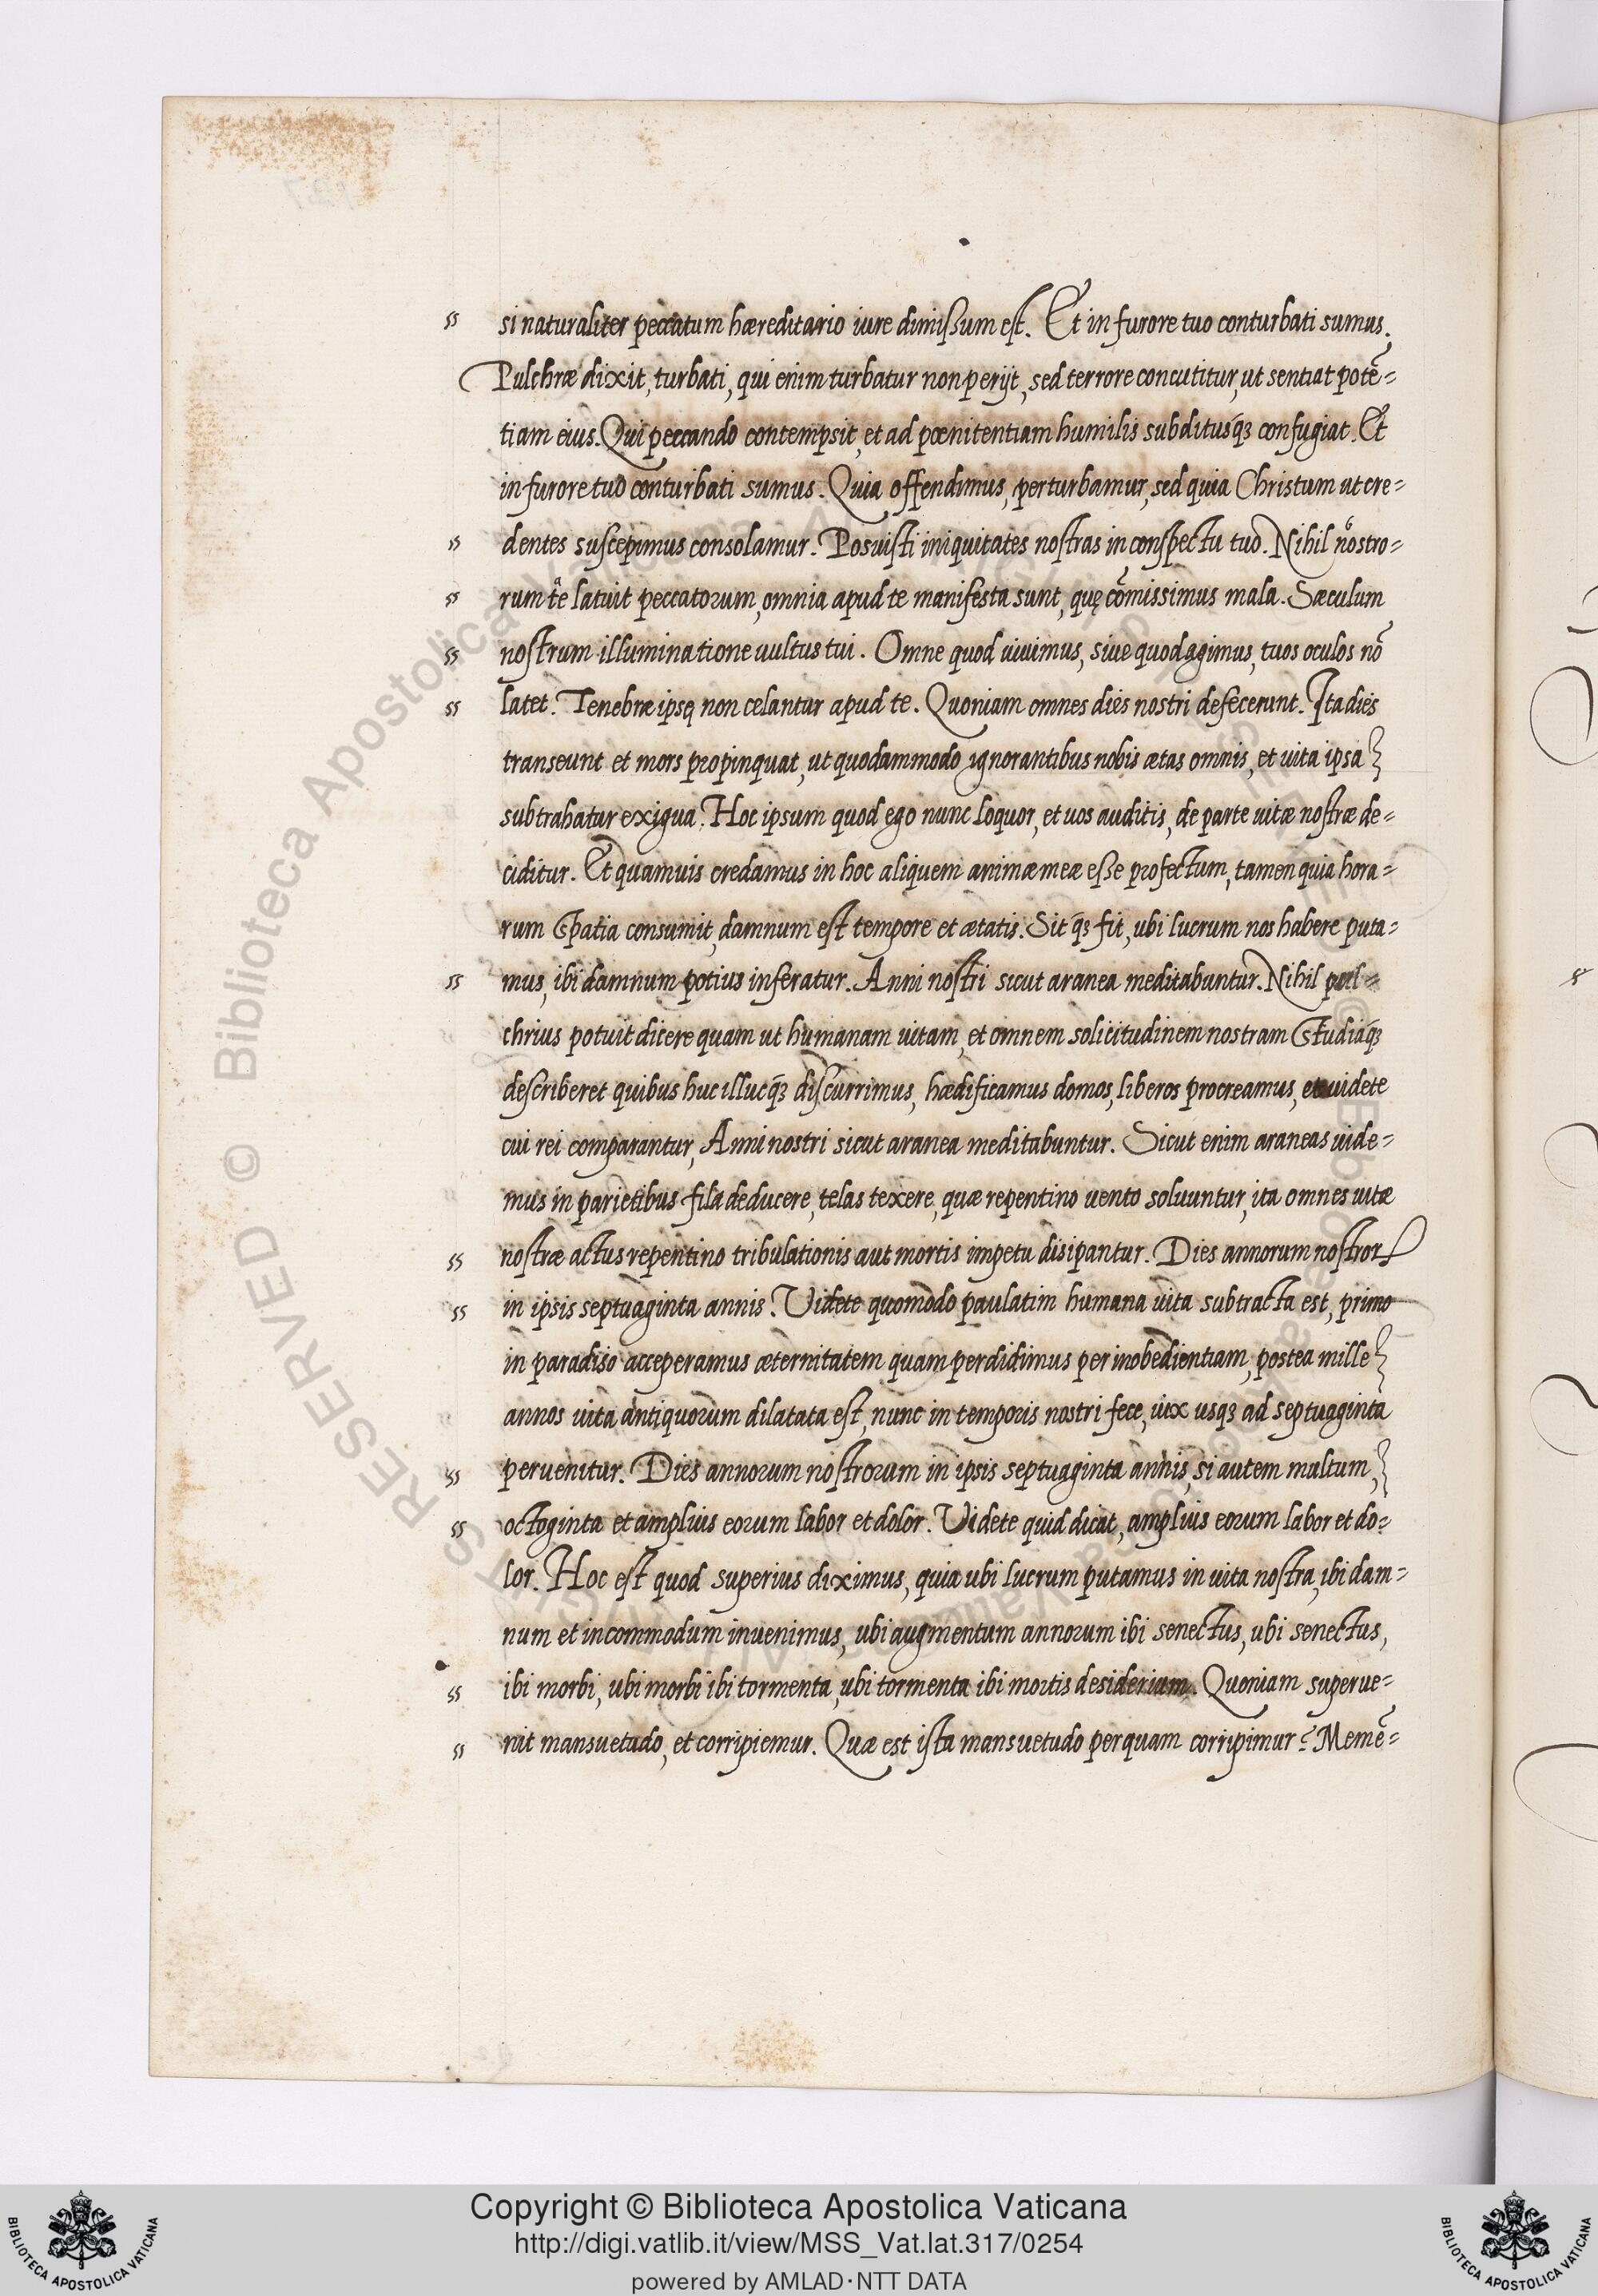 si naturaliter peccatum hæreditario iure dimissum est. Et in furore tuo conturbati sumus.
Pulchræ dixit, turbati, qui enim turbatur non perijt, sed terrore concutitur, ut sentiat potē=
tiam eius. Qui peccando contempsit, et ad pœnitentiam humilis subditusq́ꝫ confugiat. Et
in furore tuo conturbati sumus. Quia offendimus, perturbamur, sed quia Christum ut cre=
dentes suscepimus consolamur. Posuisti iniquitates nostras in conspectu tuo. Nihil nostro=
rum te latuit peccatorum, omnia apud te manifesta sunt, quę cōmissimus mala. Sæculum
nostrum illuminatione uultus tui. Omne quod uiuimus, siue quod agimus, tuos oculos nō
latet. Tenebræ ipsę non celantur apud te. Quoniam omnes dies nostri defecerunt. Ita dies
transeunt et mors propinquat, ut quodammodo ignorantibus nobis ætas omnis, et uita ipsa
subtrahatur exigua. Hoc ipsum quod ego nunc loquor, et uos auditis, de parte uitæ nostræ de=
ciditur. Et quamuis credamus in hoc aliquem animæ meæ esse profectum, tamen quia hora=
rum spatia consumit, damnum est tempore et ætatis. Sit q́ꝫ fit, ubi lucrum nos habere puta=
mus, ibi damnum potius inferatur. Anni nostri sicut aranea meditabuntur. Nihil pul=
chrius potuit dicere quam ut humanam uitam, et omnem solicitudinem nostram studiaq́ꝫ
describeret quibus huc illucq́ꝫ discurrimus, hædificamus domos, liberos procreamus, et uidete
cui rei comparantur, Anni nostri sicut aranea meditabuntur. Sicut enim araneas uide=
mus in parietibus fila deducere, telas texere, quæ repentino uento soluuntur, ita omnes uitæ
nostræ actus repentino tribulationis aut mortis impetu disipantur. Dies annorum nostroꝝ
in ipsis septuaginta annis. Uidete quomodo paulatim humana uita subtracta est, primo
in paradiso acceperamus æternitatem quam perdidimus per inobedientiam, postea mille
annos uita antiquorum dilatata est, nunc in temporis nostri fece, uix usqꝫ ad septuaginta
peruenitur. Dies annorum nostrorum in ipsis septuaginta annis, si autem multum,
octoginta et amplius eorum labor et dolor. Uidete quid dicat, amplius eorum labor et do=
lor. Hoc est quod superius diximus, quia ubi lucrum putamus in uita nostra, ibi dam=
num et incommodum inuenimus, ubi augmentum annorum ibi senectus, ubi senectus,
ibi morbi, ubi morbi ibi tormenta, ubi tormenta ibi mortis desiderium. Quoniam superue=
nit mansuetudo, et corripiemur. Quæ est ista mansuetudo per quam corripimur? Memē=
Copyright © Biblioteca Apostolica Vaticana
http://digi.vatlib.it/view/MSS_Vat.lat.317/0254
powered by AMLAD·NTT DATA